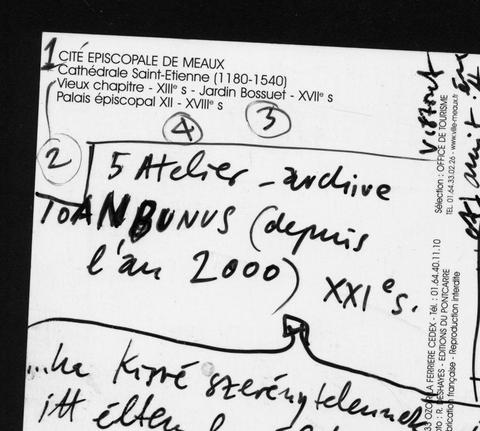 1
CITÉ EPISCOPALE DE MEAUX
Cathédrale Saint-Etienne (1180-1540)
Vieux chapitre - XIIIe s - Jardin Bossuet - XVIIe s
Palais épiscopal XII - XVIIIe s
2
4
3
5 Atelier - archive
IOANBUNUS (depuis
l'an 2000) XXIe s.
...ha Kissé szerénytelennek
itt éltem
Sélection : OFFICE DE TOURISME
TEL. 01.64.33.02.26 - www.ville-meaux.fr
OZOIR LA FERRIERE CEDEX - Tél. : 01.64.40.11.10
R. DESHAYES - EDITIONS DU PONTCARRE
Reproduction interdite